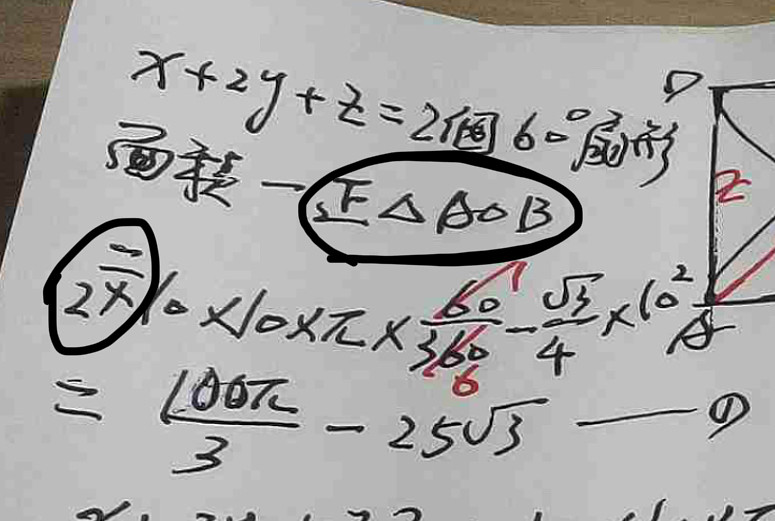 x+2y+z=2個60°扇形
面積-正△AOB
=2×10×10×π×60/360-√3/4×10²
=100π/3-25√3——①
D
z
A
6
1